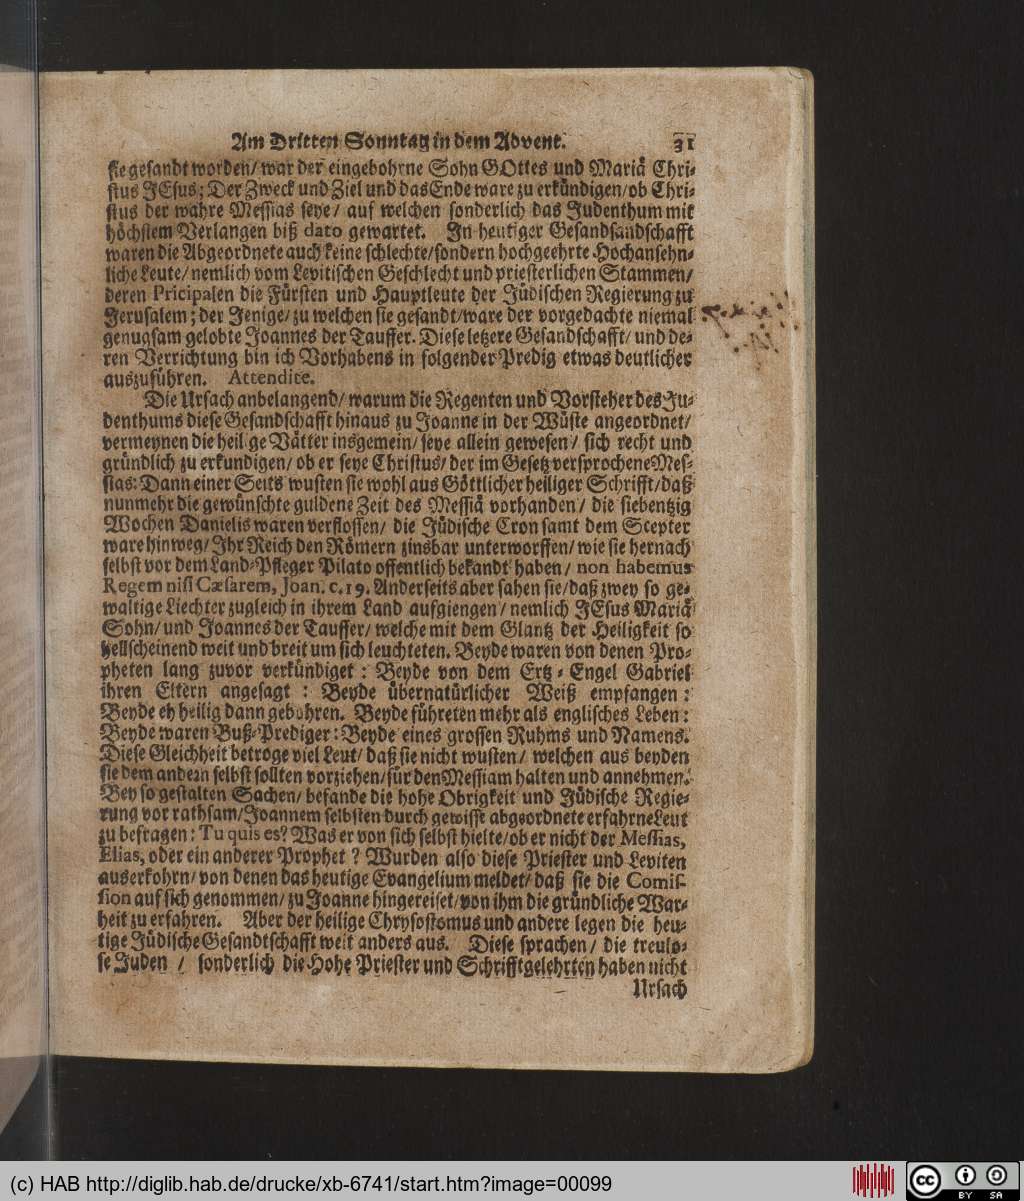 Am Dritten Sonntag in dem Advent. 31
sie gesandt worden/ war der eingebohrne Sohn GOttes und Mariä Chri-
stus JEsus; Der Zweck und Ziel und das Ende ware zu erkündigen/ ob Chri-
stus der wahre Messias seye/ auf welchen sonderlich das Judenthum mit
höchstem Verlangen biß dato gewartet. In heutiger Gesandsandschafft
waren die Abgeordnete auch keine schlechte/ sondern hochgeehrte Hochansehn-
liche Leute/ nemlich vom Levitischen Geschlecht und priesterlichen Stammen/
deren Pricipalen die Fürsten und Hauptleute der Jüdischen Regierung zu
Jerusalem; der Jenige/ zu welchen sie gesandt/ ware der vorgedachte niemal
genugsam gelobte Joannes der Tauffer. Diese letzere Gesandschafft/ und de-
ren Verrichtung bin ich Vorhabens in folgender Predig etwas deutlicher
auszuführen. Attendite.
Die Ursach anbelangend/ warum die Regenten und Vorsteher des Ju-
denthums diese Gesandschafft hinaus zu Joanne in der Wüste angeordnet/
vermeynen die heil ge Vätter insgemein/ seye allein gewesen/ sich recht und
gründlich zu erkundigen/ ob er seye Christus/ der im Gesetz versprochene Mes-
sias: Dann einer Seits wusten sie wohl aus Göttlicher heiliger Schrifft/ daß
nunmehr die gewünschte guldene Zeit des Messiä vorhanden/ die siebentzig
Wochen Danielis waren verflossen/ die Jüdische Cron samt dem Scepter
ware hinweg/ Ihr Reich den Römern zinsbar unterworffen/ wie sie hernach
selbst vor dem Land-Pfleger Pilato offentlich bekandt haben/ non habemus
Regem nisi Cæsarem, Joan. c. 19. Anderseits aber sahen sie/ daß zwey so ge-
waltige Liechter zugleich in ihrem Land aufgiengen/ nemlich JEsus Mariä
Sohn/ und Joannes der Tauffer/ welche mit dem Glantz der Heiligkeit so
hellscheinend weit und breit um sich leuchteten. Beyde waren von denen Pro-
pheten lang zuvor verkündiget: Beyde von dem Ertz-Engel Gabriel
ihren Eltern angesagt: Beyde übernatürlicher Weiß empfangen:
Beyde eh heilig dann gebohren. Beyde führeten mehr als englisches Leben:
Beyde waren Buß-Prediger: Beyde eines grossen Ruhms und Namens.
Diese Gleichheit betroge viel Leut/ daß sie nicht wusten/ welchen aus beyden
sie dem andern selbst sollten vorziehen/ für den Messiam halten und annehmen.
Bey so gestalten Sachen/ befande die hohe Obrigkeit und Jüdische Regie-
rung vor rathsam/ Joannem selbsten durch gewisse abgeordnete erfahrne Leut
zu befragen: Tu quis es? Was er von sich selbst hielte/ ob er nicht der Messias,
Elias, oder ein anderer Prophet? Wurden also diese Priester und Leviten
auserkohrn/ von denen das heutige Evangelium meldet/ daß sie die Comis-
sion auf sich genommen/ zu Joanne hingereiset/ von ihm die gründliche War-
heit zu erfahren. Aber der heilige Chrysostomus und andere legen die heu-
tige Jüdische Gesandtschafft weit anders aus. Diese sprachen/ die treulo-
se Juden / sonderlich die Hohe Priester und Schrifftgelehrten haben nicht
Ursach
(c) HAB http://diglib.hab.de/drucke/xb-6741/start.htm?image=00099
cc BY SA